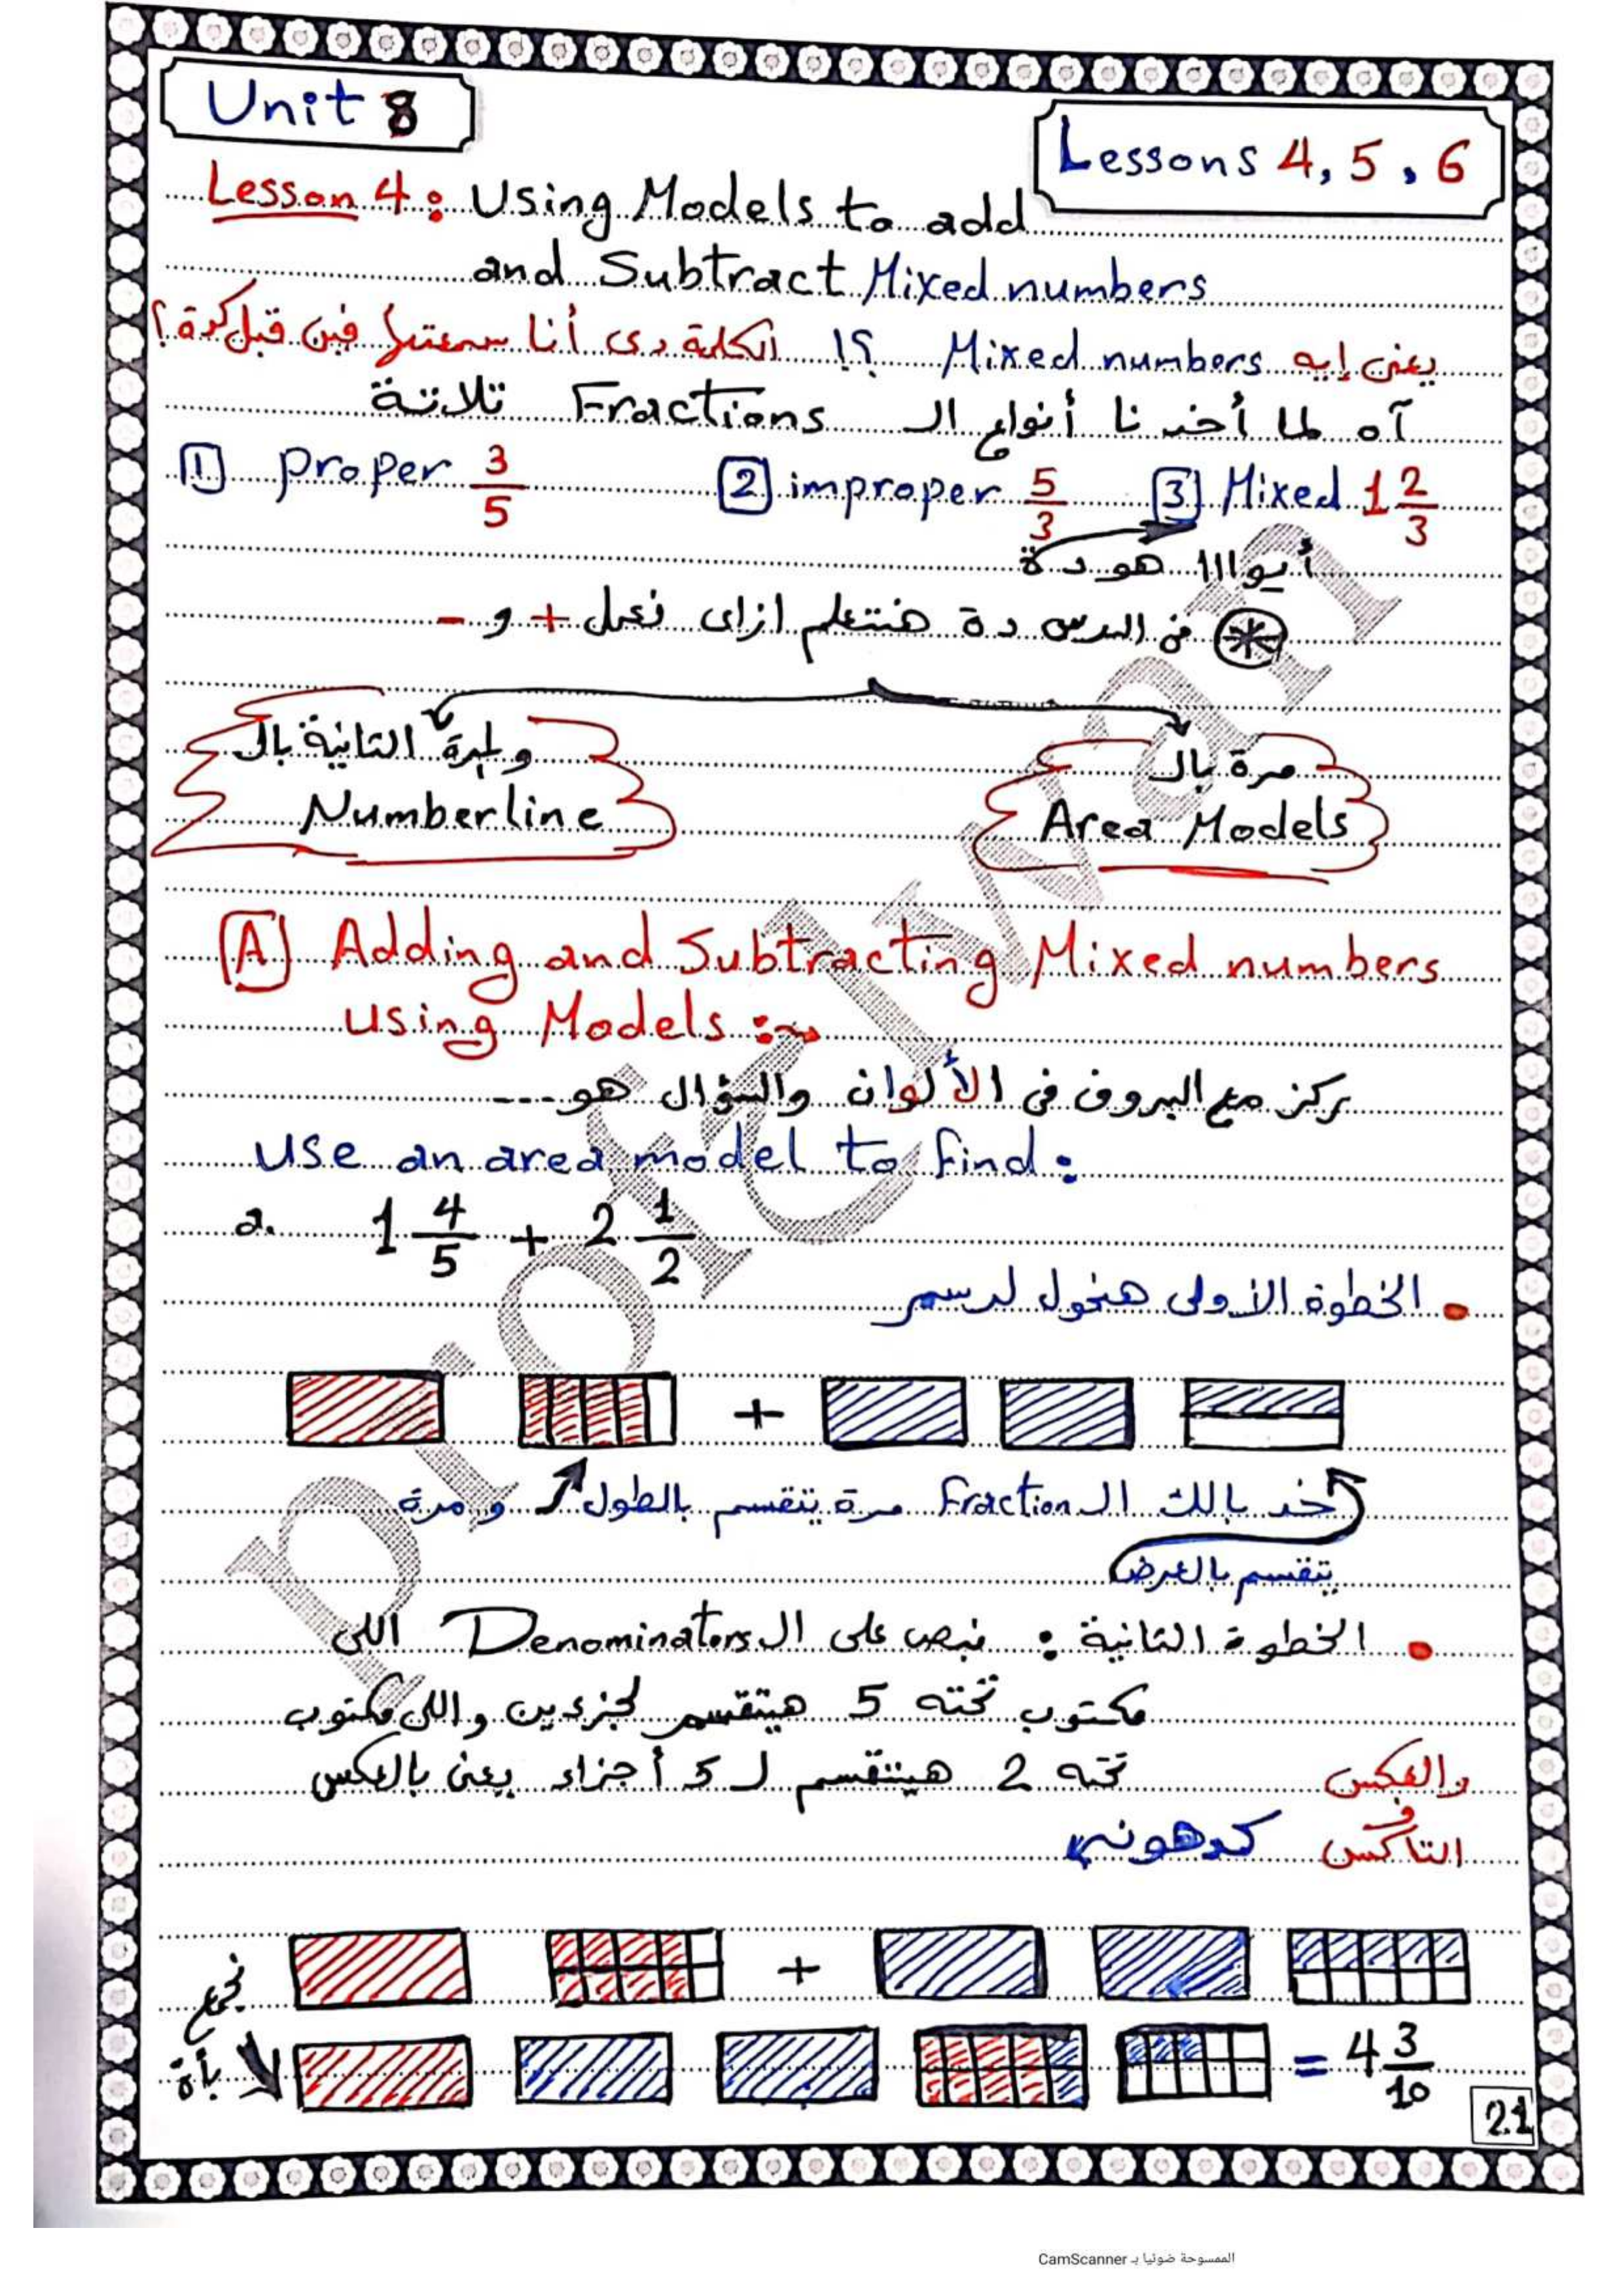 Unit 8
Lessons 4, 5, 6
Lesson 4: Using Models to add
and Subtract Mixed numbers
يعنى إيه Mixed numbers ؟! الكلمة دى أنا سمعتها فين قبل كدة؟
آه لما أخدنا أنواع الـ Fractions تلاتة
1 proper 3/5 2 improper 5/3 3 Mixed 1 2/3
أيواااا هو دة
* فى الدرس دة هنتعلم ازاى نعمل + و -
مرة بالـ
Area Models
والمرة التانية بالـ
Numberline
A Adding and Subtracting Mixed numbers
using Models:
ركز مع البروف فى الألوان والسؤال هو---
Use an area model to find:
a. 1 4/5 + 2 1/2
• الخطوة الأولى هنحول لرسم
+
خد بالك الـ Fraction مرة يتقسم بالطول ومرة
يتقسم بالعرض
• الخطوة التانية: نبص على الـ Denominators اللى
مكتوب تحته 5 هيتقسم لجزءين واللى مكتوب
تحته 2 هيتقسم لـ 5 أجزاء يعنى بالعكس
والعكس
كدهونى
+
نجمع
بأة
= 4 3/10
21
الممسوحة ضوئيا بـ CamScanner